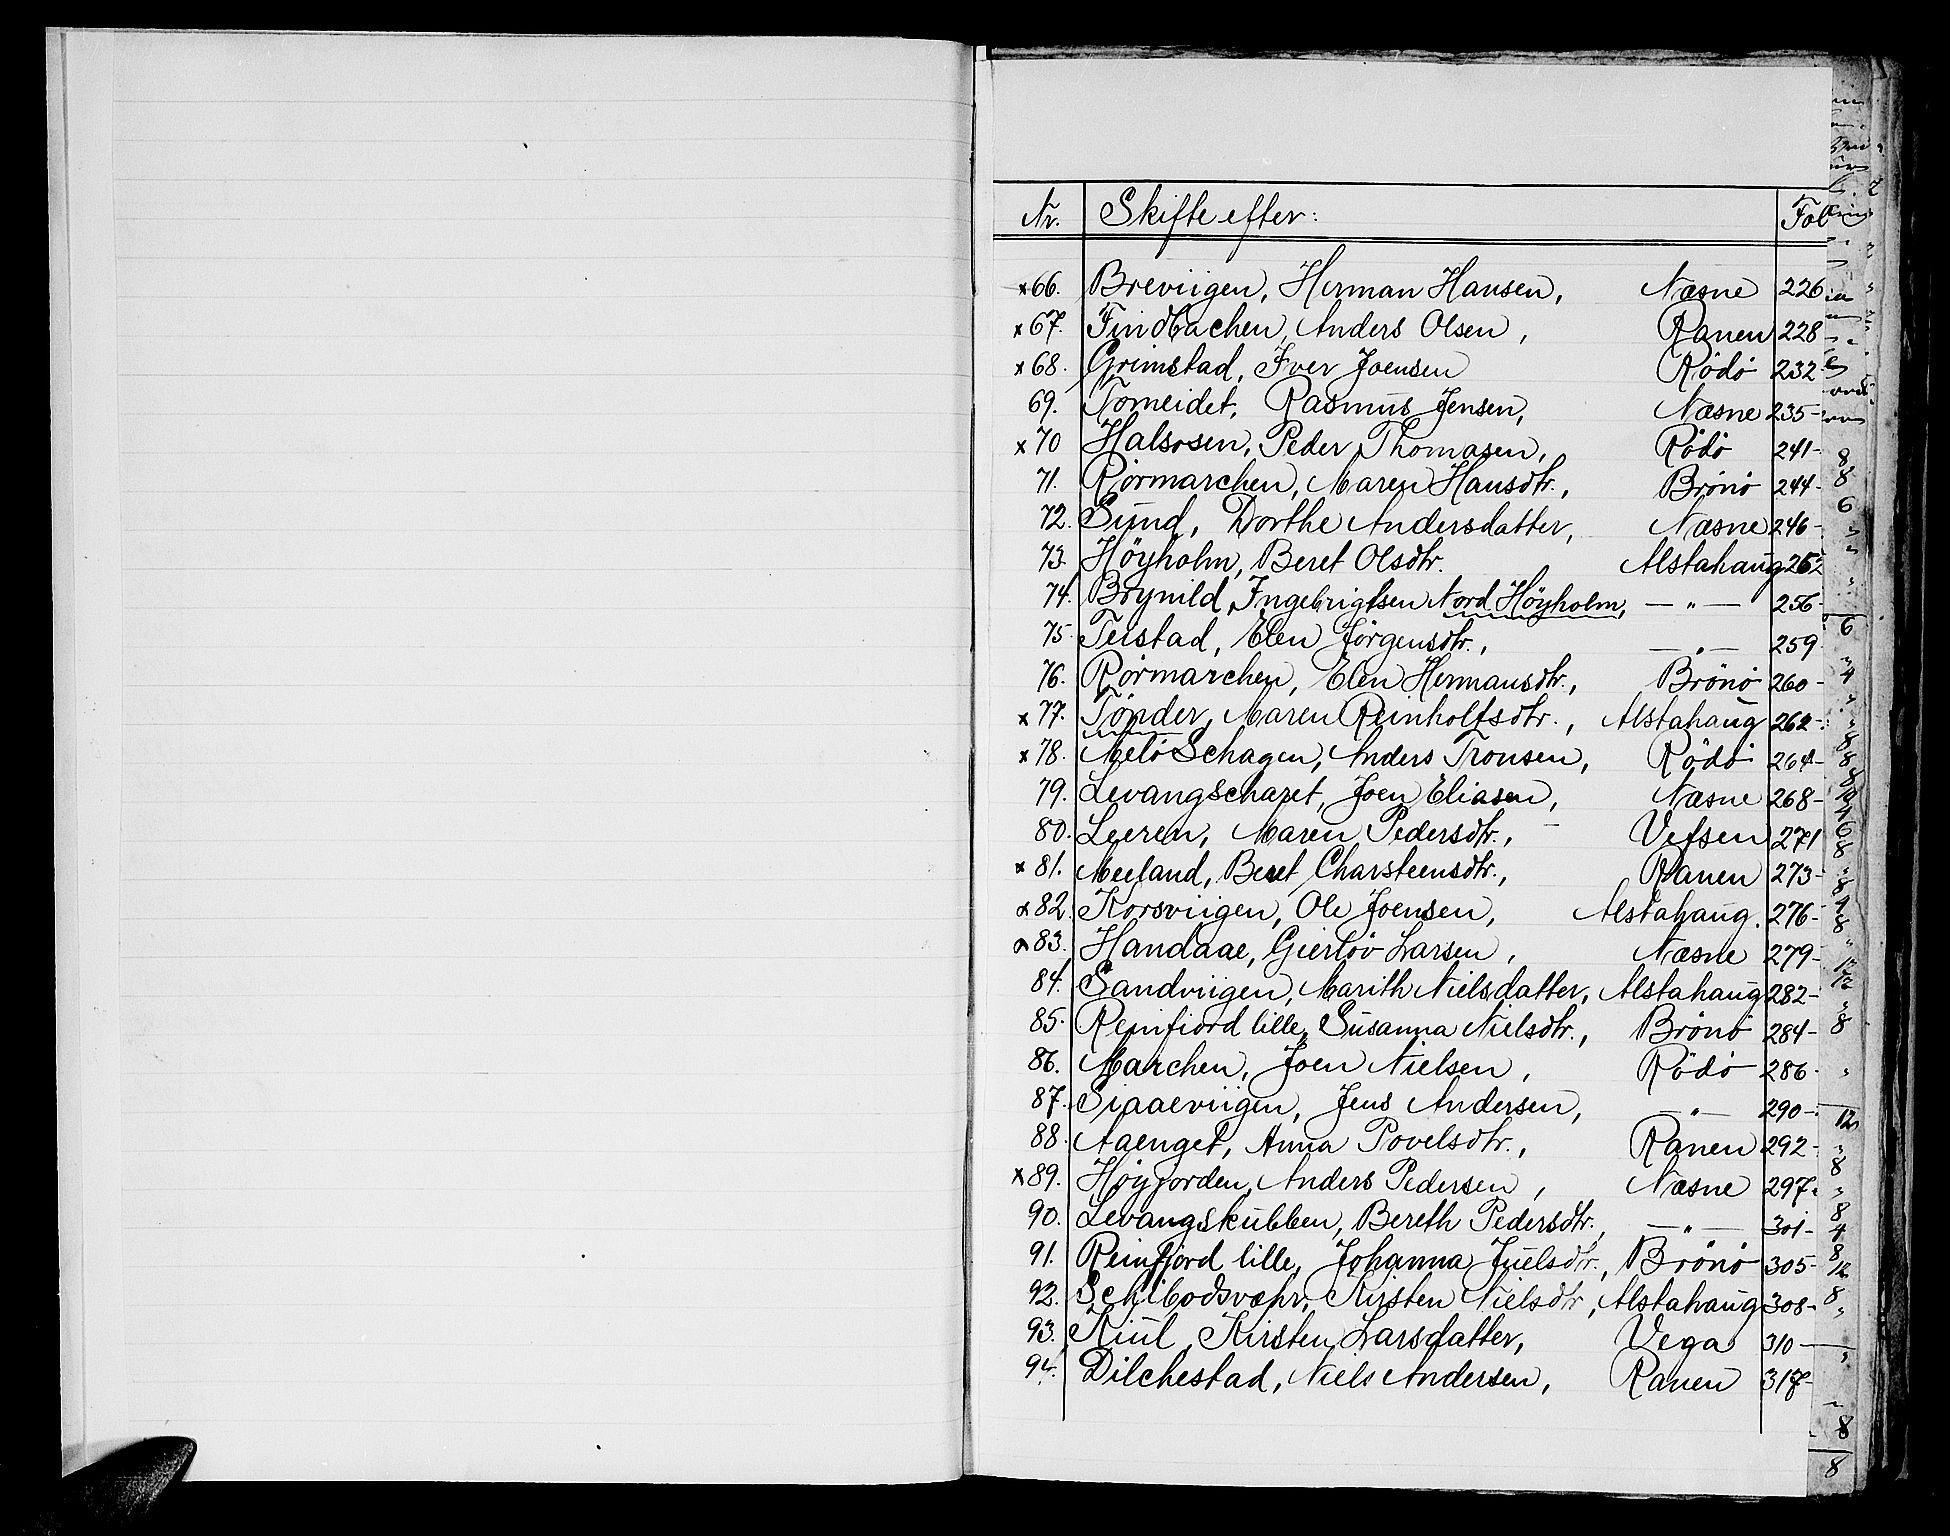 Nr. Skifte efter: Fol
x 66. Breviigen, Herman Hansen, Næsne 226
x 67. Findbachen, Anders Olsen, Ranen 228
x 68. Grimstad, Iver Joensen Rödö 232-
69. Tomeidet, Rasmus Jensen, Næsne 235-
x 70 Halsosen, Peder Thomasen, Rödö 241-
71. Rörmarchen, Maren Hansdtr., Brönö 244-
72. Sund, Dorthe Andersdatter, Næsne 246-
73. Höyholm, Beret Olsdtr. Alstahaug 252
74. Brynild, Ingebrigtsen Nord Höyholm, — " — 256-
75. Teistad, Elen Jörgensdtr., — " — 259
76. Rörmarchen, Elen Hermansdtr., Brönö 260-
x 77. Tönder, Maren Reinholtsdtr., Alstahaug 262-
x 78. Melö Schagen, Anders Tronsen, Rödö 264-
79. Levangscharet, Joen Eliasen, Næsne 268-
80. Leeren, Maren Pedersdtr., Vefsen 271
x 81. Meeland, Beret Charsteensdtr., Ranen 273-
x 82. Korsviigen, Ole Joensen, Alstahaug. 276-
x 83. Handaae, Gierlöv Larsen, Næsne 279-
84. Sandviigen, Marith Nielsdatter, Alstahaug 282-
85. Reinfiord lille, Susanna Nielsdtr., Brönö 284-
86. Marchen, Joen Nielsen, Rödö 286-
87. Siaaeviigen, Jens Andersen, — " — 290-
88. Aaenget, Anna Povelsdtr., Ranen 292-
x 89. Höyjorden, Anders Pedersen, Næsne 297-
90. Levangskubben, Bereth Pedersdtr., — " — 301-
91. Reinfjord lille, Johanna Juelsdtr., Brönö 305-
92. Schibodsvæhr, Kirsten Nielsdtr, Alstahaug 308-
93. Kiul, Kirsten Larsdatter, Vega 310—
94. Dilchestad, Niels Andersen, Ranen 317-